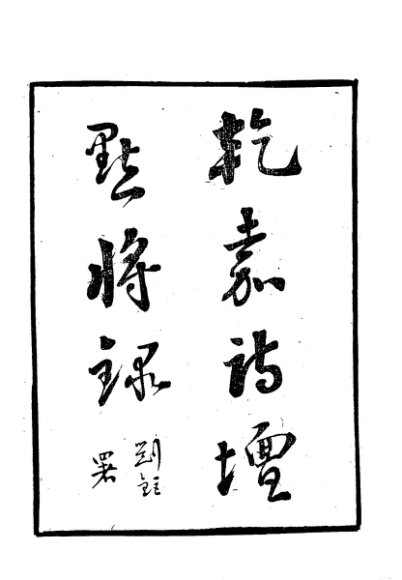 乾嘉詩壇
點將録
劉鈺
署